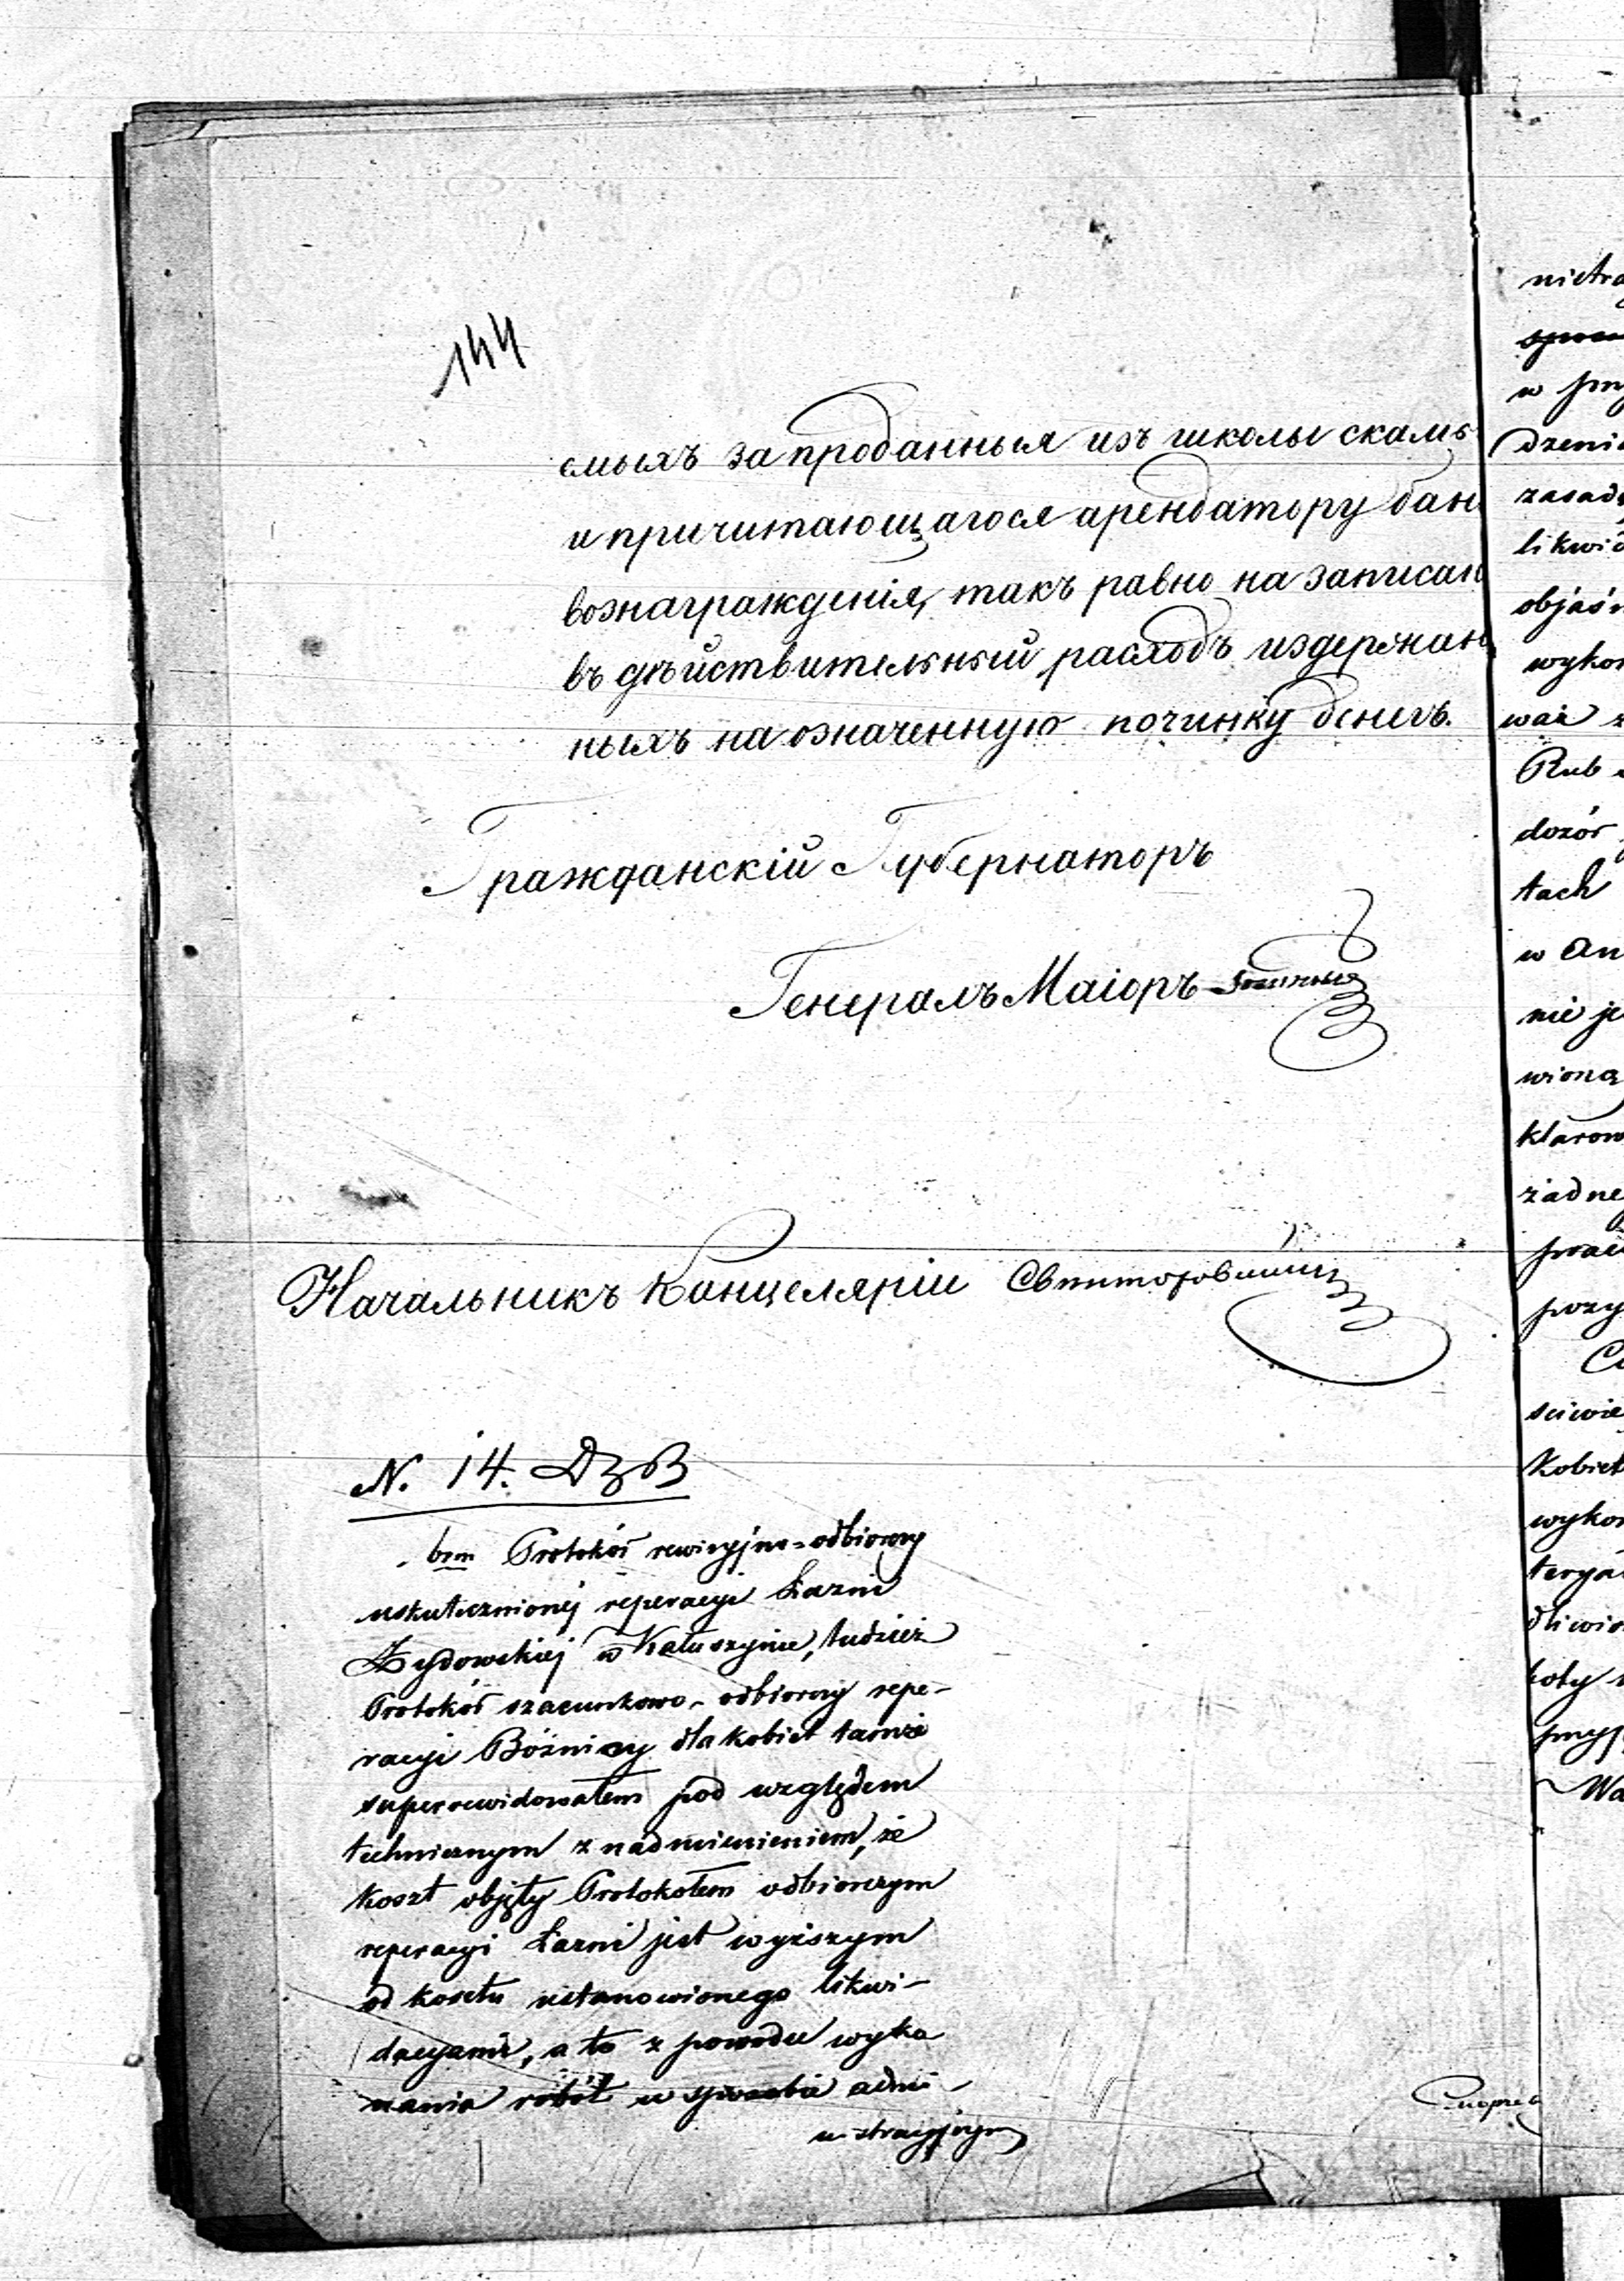 144
емыхъ за проданныя изъ школы скамь
и причитающагося арендатору бан
вознагражденія, такъ равно на записан
въ дѣйствительный расходъ издержан
ныхъ на означенную починку денегъ.
Гражданскій Губернаторъ
Генералъ Маіоръ
Начальникъ Канцеляріи
N. 14. DzB
Protokół rewizyjno-odbiorczy
uskutecznionej reperacyi Łazni
Żydowskiej w Kałuszynie, tudzież
Protokół szacunkowo-odbiorczy repe-
racyi Bóżnicy dla kobiet tamże
superrewidowałem pod względem
technicznym z nadmienieniem, że
koszt objęty Protokołem odbiorczym
reperacyi Łazni jest wyższym
od kosztu ustanowionego likwi-
dacyami, a to z powodu wyko
nania robót w sposobie admi-
nistracyjnym
nietra
w
dzeni
zasad
likwid
objaśn
wykon
waż
Rub
dozór
tach
w An
nie je
wioną
klarow
żadne
prac
pozy
sciwie
Kobiet
wykon
teryał
dliwi
boty
przy
Wa